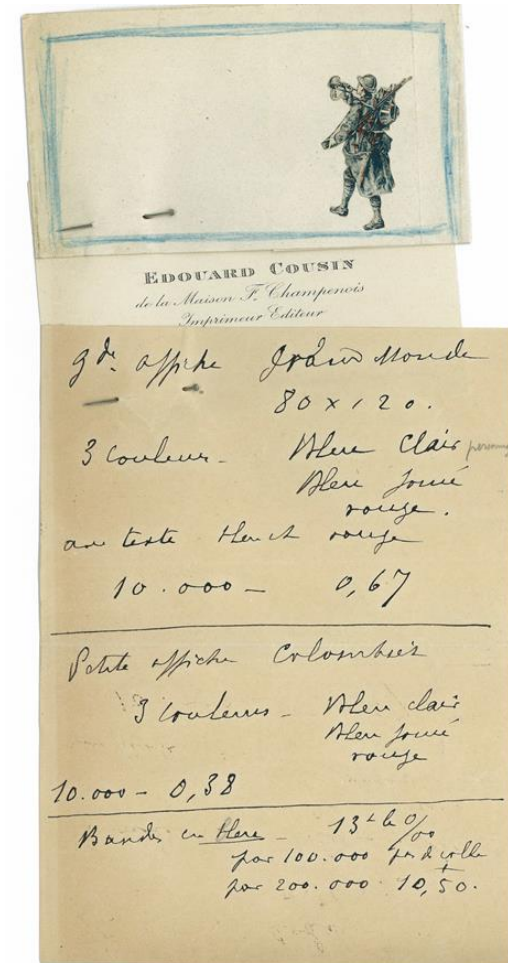 EDOUARD COUSIN
de la Maison F. Champenois
Imprimeur Editeur
gde. affiche Grand Monde
80 x 120.
3 couleurs - Bleu clair
Bleu foncé
rouge.
avec texte bleu et rouge
10.000 - 0,67
Petite affiche Colombier
3 couleurs - Bleu clair
Bleu foncé
rouge
10.000 - 0,38
Bandes en bleu - 13 le 0/00
par 100.000
par 200.000 10,50.